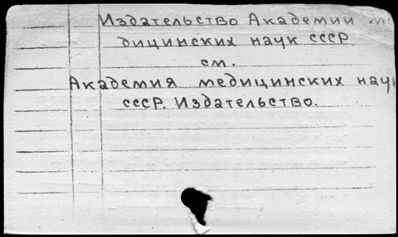 Издательство Академии ме
дицинских наук СССР
см.
Академия медицинских наук
СССР. Издательство.